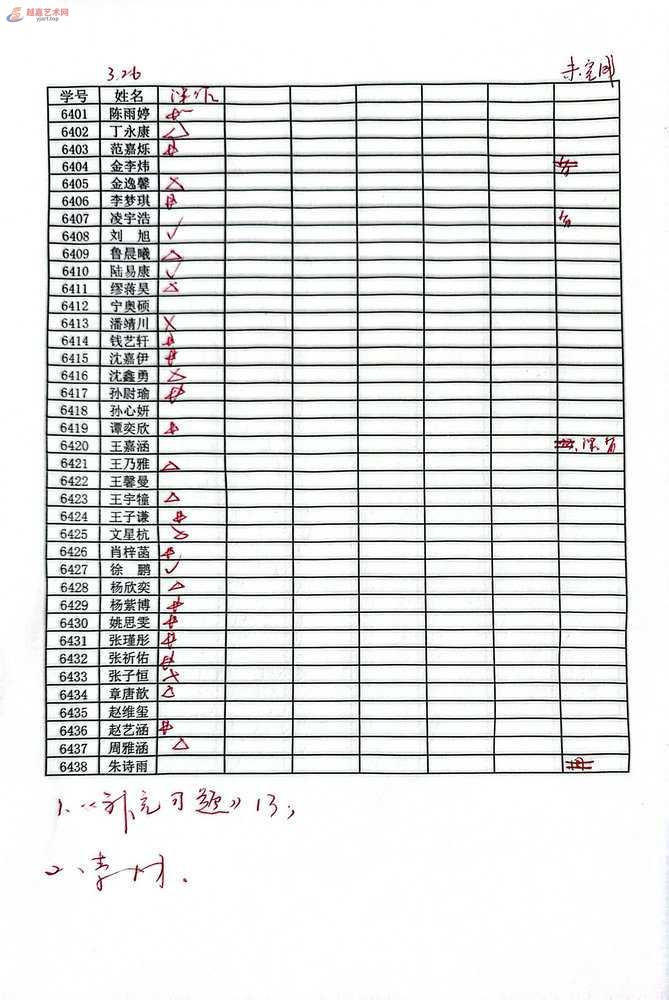 越嘉艺术网
yjart.top
3.26 未完成
学号 姓名 课作
6401 陈雨婷
6402 丁永康 △
6403 范嘉烁
6404 金李炜
6405 金逸馨
6406 李梦琪
6407 凌宇浩
6408 刘 旭 ✓
6409 鲁晨曦 △
6410 陆易康 ✓
6411 缪蒋昊
6412 宁奥硕
6413 潘靖川
6414 钱艺轩
6415 沈嘉伊
6416 沈鑫勇
6417 孙尉瑜
6418 孙心妍
6419 谭奕欣
6420 王嘉涵
6421 王乃雅 △
6422 王馨曼
6423 王宇橦 △
6424 王子谦
6425 文星杭
6426 肖梓菡
6427 徐 鹏 ✓
6428 杨欣奕 △
6429 杨紫博
6430 姚思雯
6431 张瑾彤
6432 张祈佑
6433 张子恒
6434 章唐歆 △
6435 赵维玺
6436 赵艺涵
6437 周雅涵 △
6438 朱诗雨
1、《补充习题》13；
2、